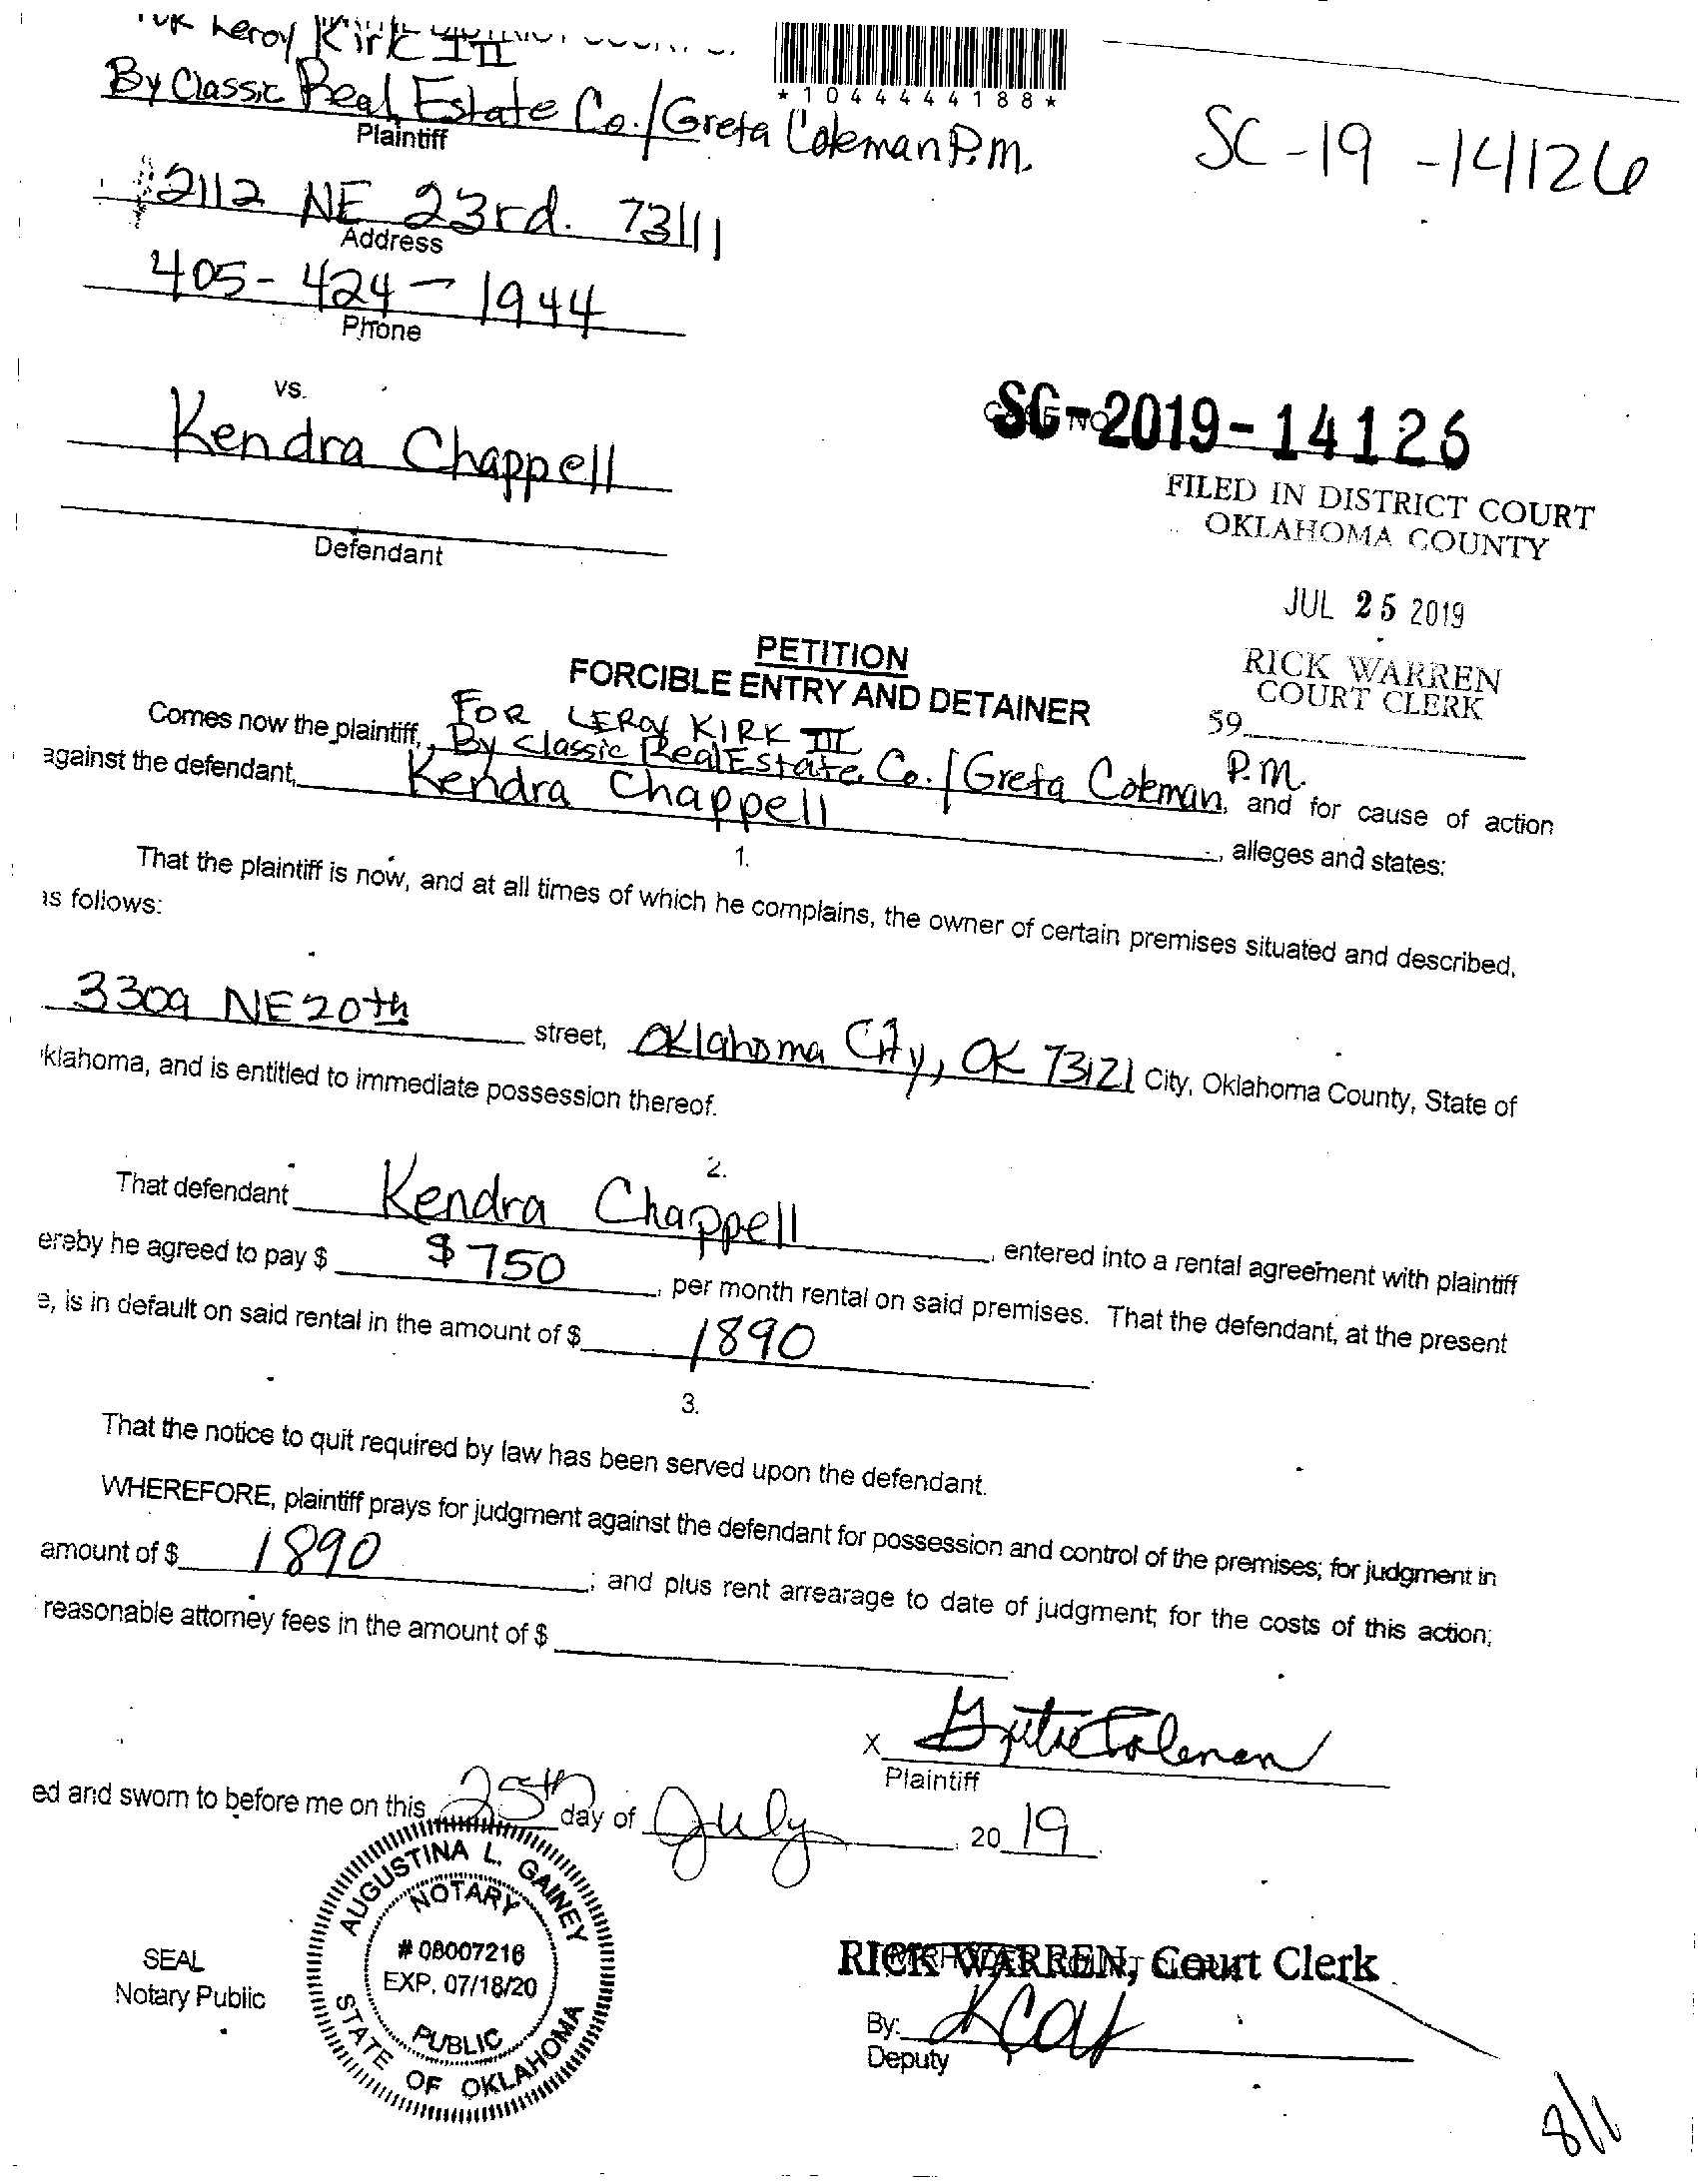 Leroy Kirk III
*1044444188*
By Classic Real Estate Co./Greta Coleman P.m.
Plaintiff
SC-19-14126
2112 NE 23rd. 73111
Address
405-424-1944
Phone
vs.
Kendra Chappell
SC-2019-14126
Defendant
FILED IN DISTRICT COURT
OKLAHOMA COUNTY
JUL 25 2019
RICK WARREN
COURT CLERK
59
PETITION
FORCIBLE ENTRY AND DETAINER
FOR LEROY KIRK III
Comes now the plaintiff, By Classic Real Estate Co./Greta Coleman, P.m. and for cause of action
against the defendant, Kendra Chappell, alleges and states:
1.
That the plaintiff is now, and at all times of which he complains, the owner of certain premises situated and described,
as follows:
3309 NE 20th street, Oklahoma City, OK 73121 City, Oklahoma County, State of
klahoma, and is entitled to immediate possession thereof.
2.
That defendant Kendra Chappell, entered into a rental agreement with plaintiff
ereby he agreed to pay $ $750, per month rental on said premises. That the defendant, at the present
e, is in default on said rental in the amount of $ 1890
3.
That the notice to quit required by law has been served upon the defendant.
WHEREFORE, plaintiff prays for judgment against the defendant for possession and control of the premises; for judgment in
amount of $ 1890; and plus rent arrearage to date of judgment; for the costs of this action;
reasonable attorney fees in the amount of $
X Greta Coleman
Plaintiff
ed and sworn to before me on this 25th day of July, 2019.
AUGUSTINA L. GAINEY
NOTARY
# 08007216
EXP. 07/18/20
PUBLIC
STATE OF OKLAHOMA
SEAL
Notary Public
RICK WARREN, Court Clerk
By:
Deputy
8/1